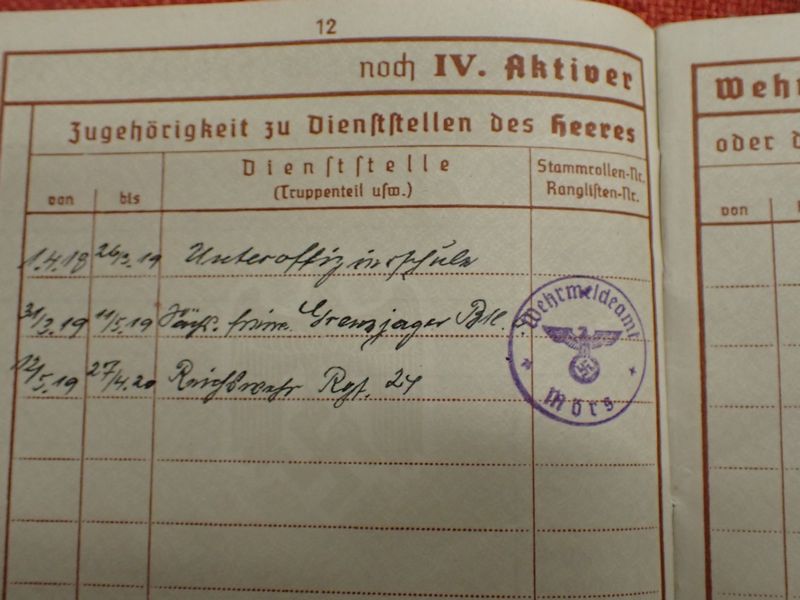 12
noch IV. Aktiver
Wehr
Zugehörigkeit zu Dienststellen des Heeres
oder d
von bis
Dienststelle
(Truppenteil usw.)
Stammrollen-Nr.
Ranglisten-Nr.
von b
1.4.18 26/3.19 Unteroffizierschule
31/3.19 11/5.19 Sächs. freiw. Grenzjäger Btl.
12/5.19 27/4.20 Reichswehr Rgt. 24
Wehrmeldeamt
Mörs